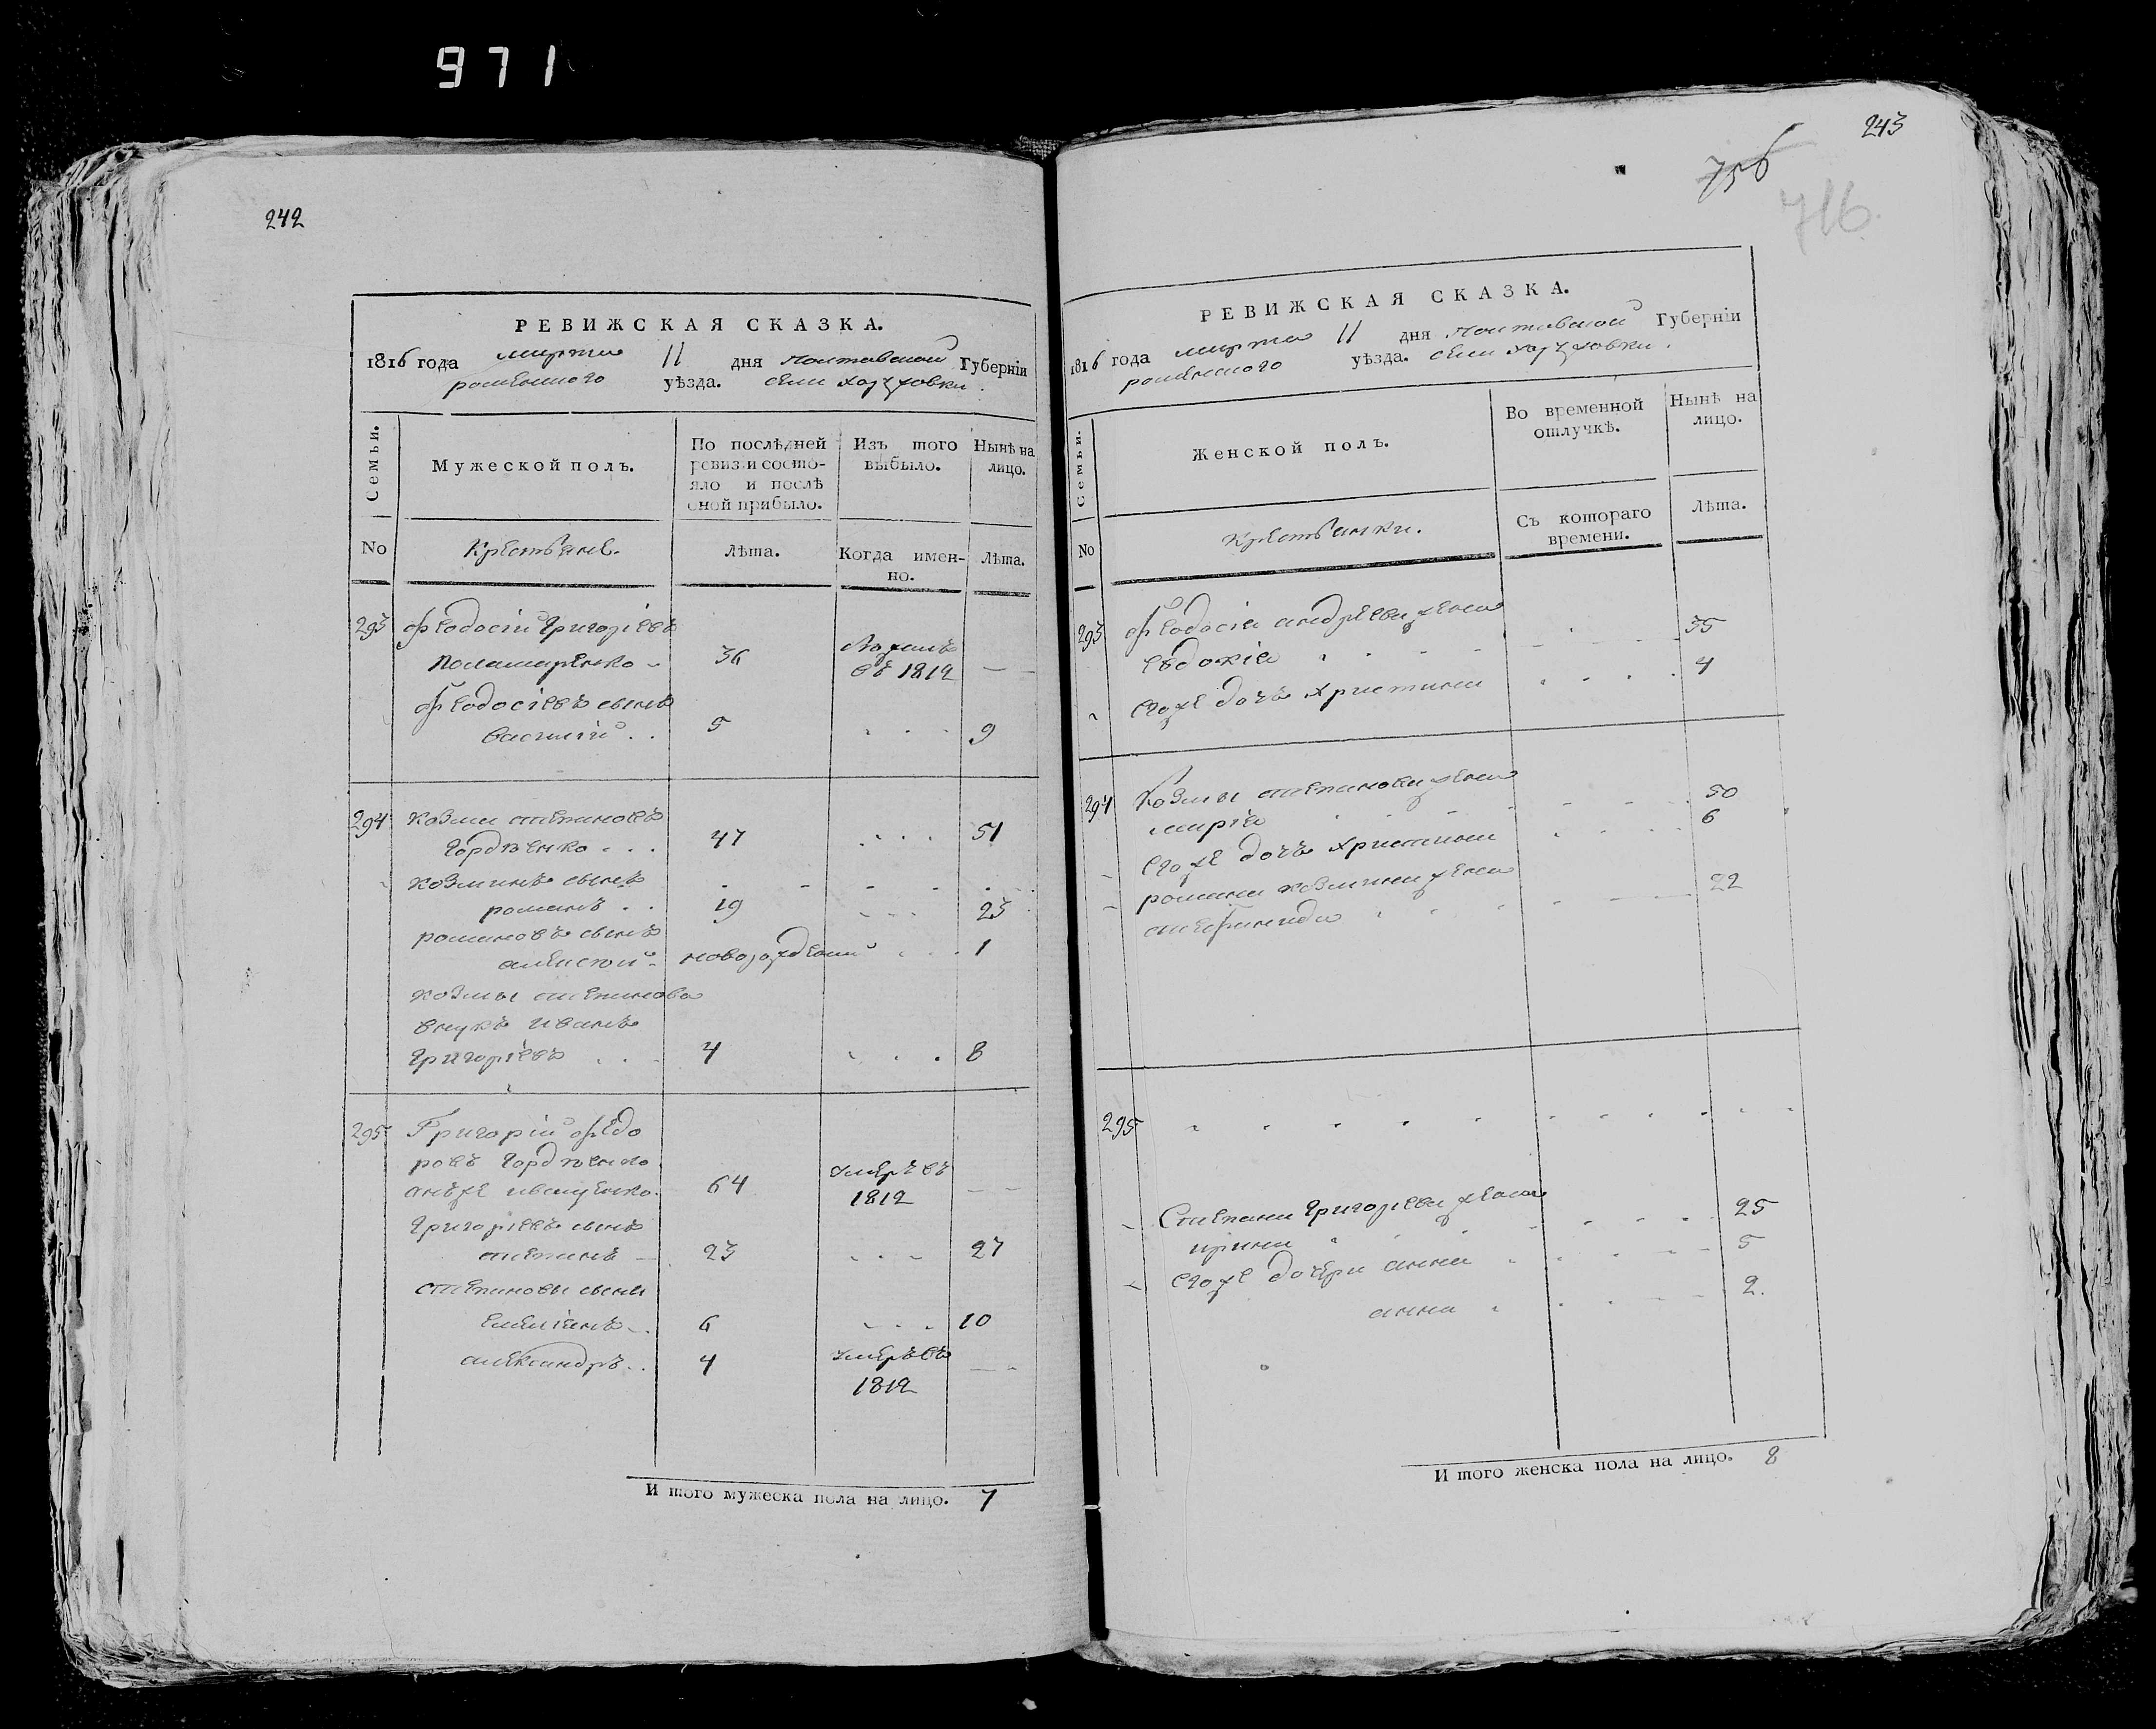 971
242
РЕВИЖСКАЯ СКАЗКА.
1816 года марта 11 дня Полтавской Губернїи
роменского уѣзда. села
Семьи.
Мужеской полъ.
По послѣдней ревизїи состояло и послѣ оной прибыло.
Изъ того выбыло.
Нынѣ на лицо.
No
Крестьяне.
Лѣта.
Когда именно.
Лѣта.
293 Феодосій Григоріевъ
36
въ 1812 —
Феодосіевъ сынъ
Василій . . 5 . . . 9
294 Козма Степановъ
Гордѣенко . . . 47 . . . 51
Козминъ сынъ
романъ . . 19 . . . 23
романовъ сынъ
алексѣй новорожденый . . . 1
Козмы Степанова
внукъ иванъ
Григоріевъ . . . 4 . . . 8
295 Григорій Федо
ровъ Гордѣенко
онъже иващенко. 64 умеръ въ 1812 — —
Григоріевъ сынъ
степанъ — 23 . . . 27
степановы сыны
емеліянъ . . 6 . . . 10
александръ . . 4 умеръ въ 1812 — —
И того мужеска пола на лицо. 7
243
756
716.
РЕВИЖСКАЯ СКАЗКА.
1816 года марта 11 дня Полтавской Губернїи
роменского уѣзда. села
Семьи.
Женской полъ.
Во временной отлучкѣ.
Нынѣ на лицо.
No
Крестьянки.
Съ котораго времени.
Лѣта.
293 Феодосія андреева жена
евдокія 35
егоже дочь Христина 4
294 Козмы степанова жена
марія 50
егоже дочь Христина 6
романа козмина жена
22
295
Степана Григоріева жена
ирина 25
егоже дочери анна 5
анна 2.
И того женска пола на лицо. 8